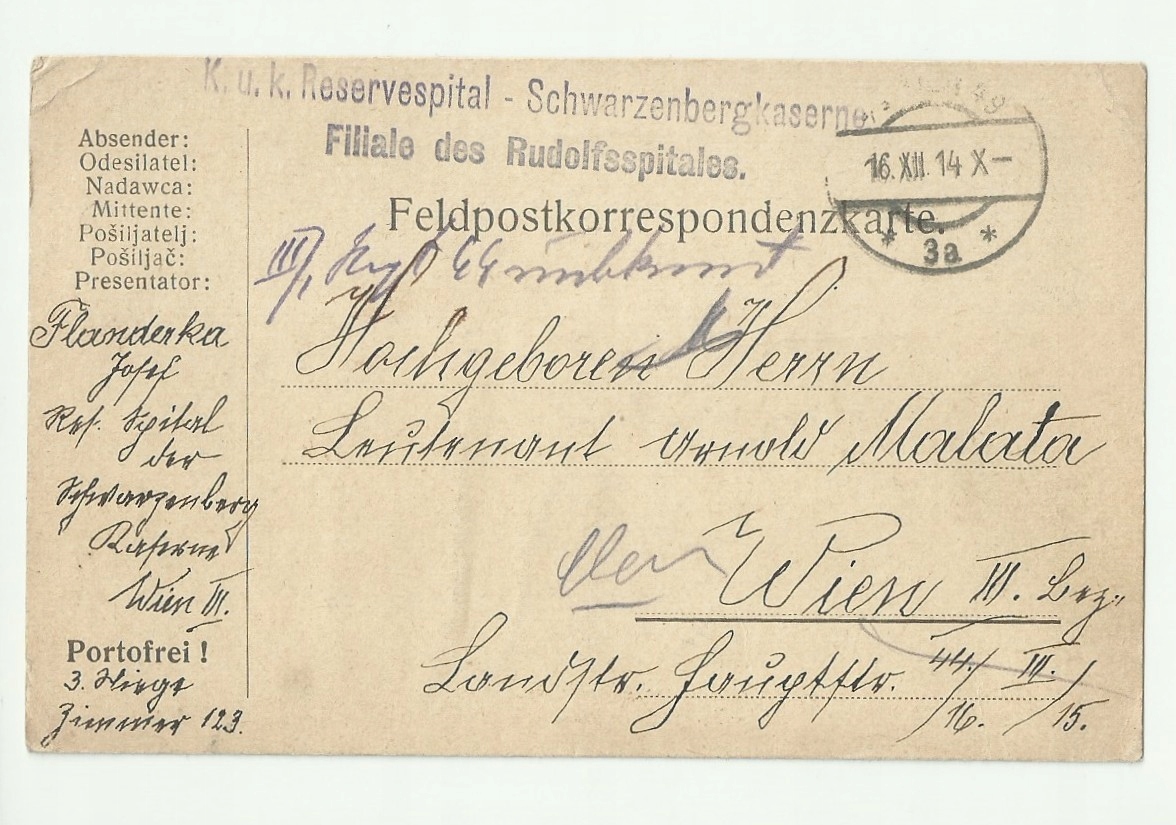 K. u. k. Reservespital - Schwarzenbergkaserne
Filiale des Rudolfsspitales.
16.XII.14 X–
* 3a *
Feldpostkorrespondenzkarte.
Absender:
Odesilatel:
Nadawca:
Mittente:
Pošiljatelj:
Pošiljač:
Presentator:
Flanderka
Josef
Res. Spital
der
Schwarzenberg
Kaserne
Wien III.
Portofrei !
3. Stiege
Zimmer 123.
III/1 44 unbekannt
Hochgeboren Herrn
Leutenant Arnold Malata
Wien III. Bez.
Landstr. Hauptstr. 44./16. III./15.